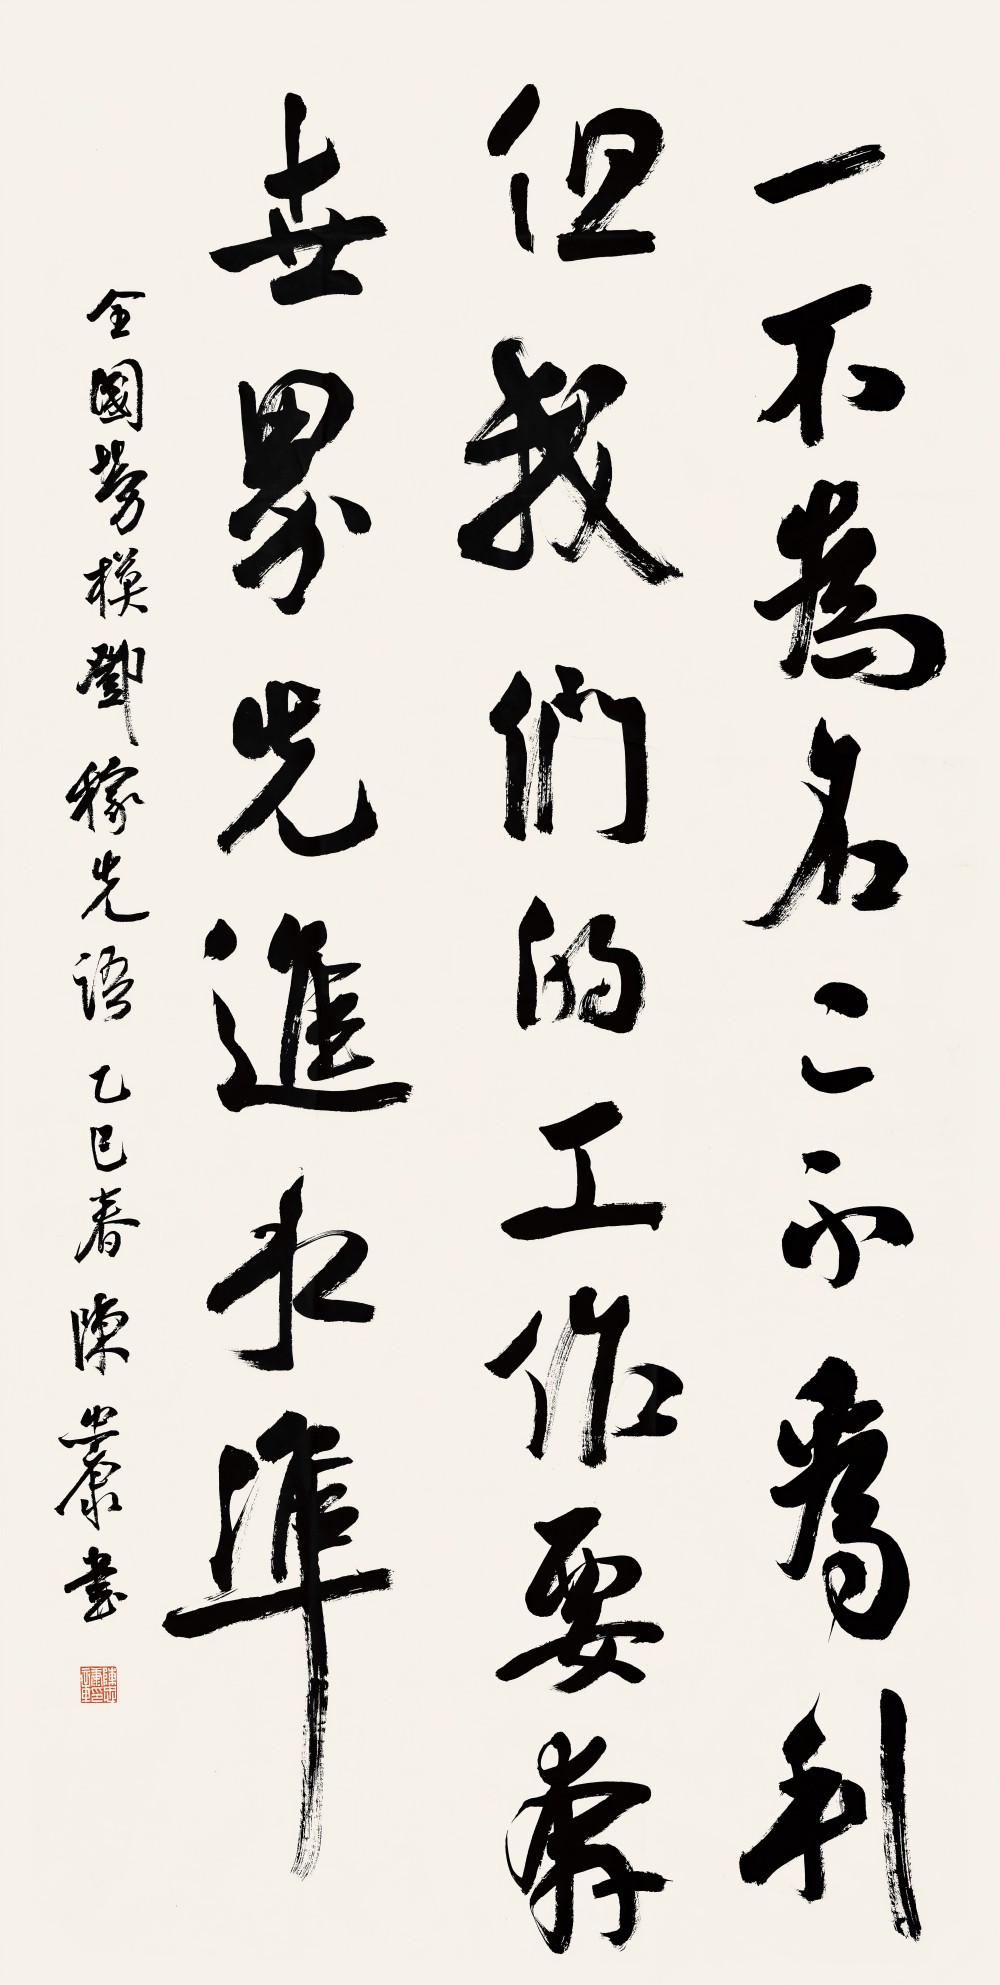 一不為名二不為利
但我們的工作要奔
世界先進水準
全國勞模鄧稼先語 乙巳春 陳 書